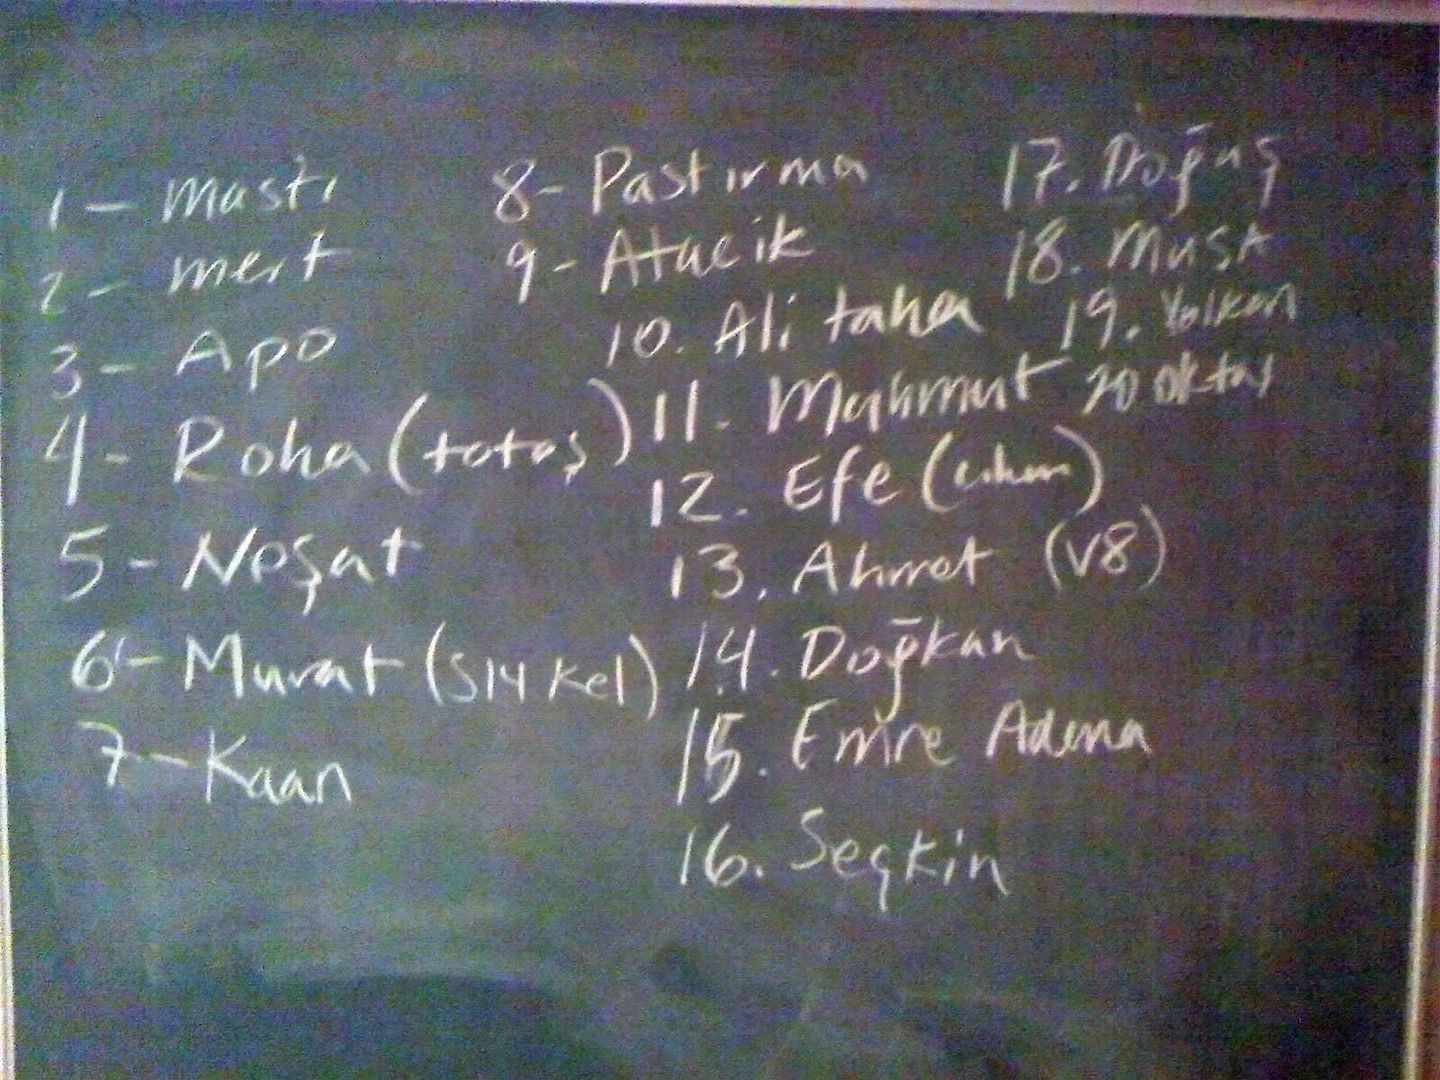 1 - Mastı
2 - mert
3 - Apo
4 - Roha (totoş)
5 - Neşat
6 - Murat (S14 Kel)
7 - Kaan
8 - Pastırma
9 - Atacik
10. Ali taha
11. Mahmut
12. Efe
13. Ahmet (V8)
14. Doğkan
15. Emre Adana
16. Seçkin
17. Doğuş
18. MUSA
19. Volkan
20 oktay